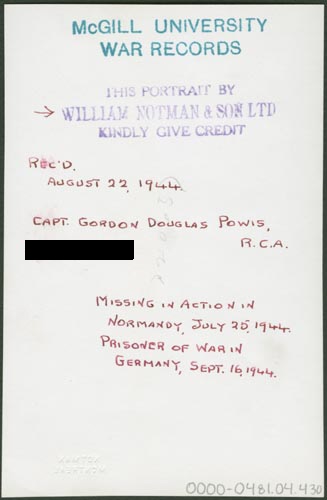 McGILL UNIVERSITY
WAR RECORDS
THIS PORTRAIT BY
→ WILLIAM NOTMAN & SON LTD
KINDLY GIVE CREDIT
REC'D.
AUGUST 22, 1944.
CAPT. GORDON DOUGLAS POWIS,
R.C.A.
MISSING IN ACTION IN
NORMANDY, JULY 25, 1944.
PRISONER OF WAR IN
GERMANY, SEPT. 16, 1944.
0000-0481.04.430